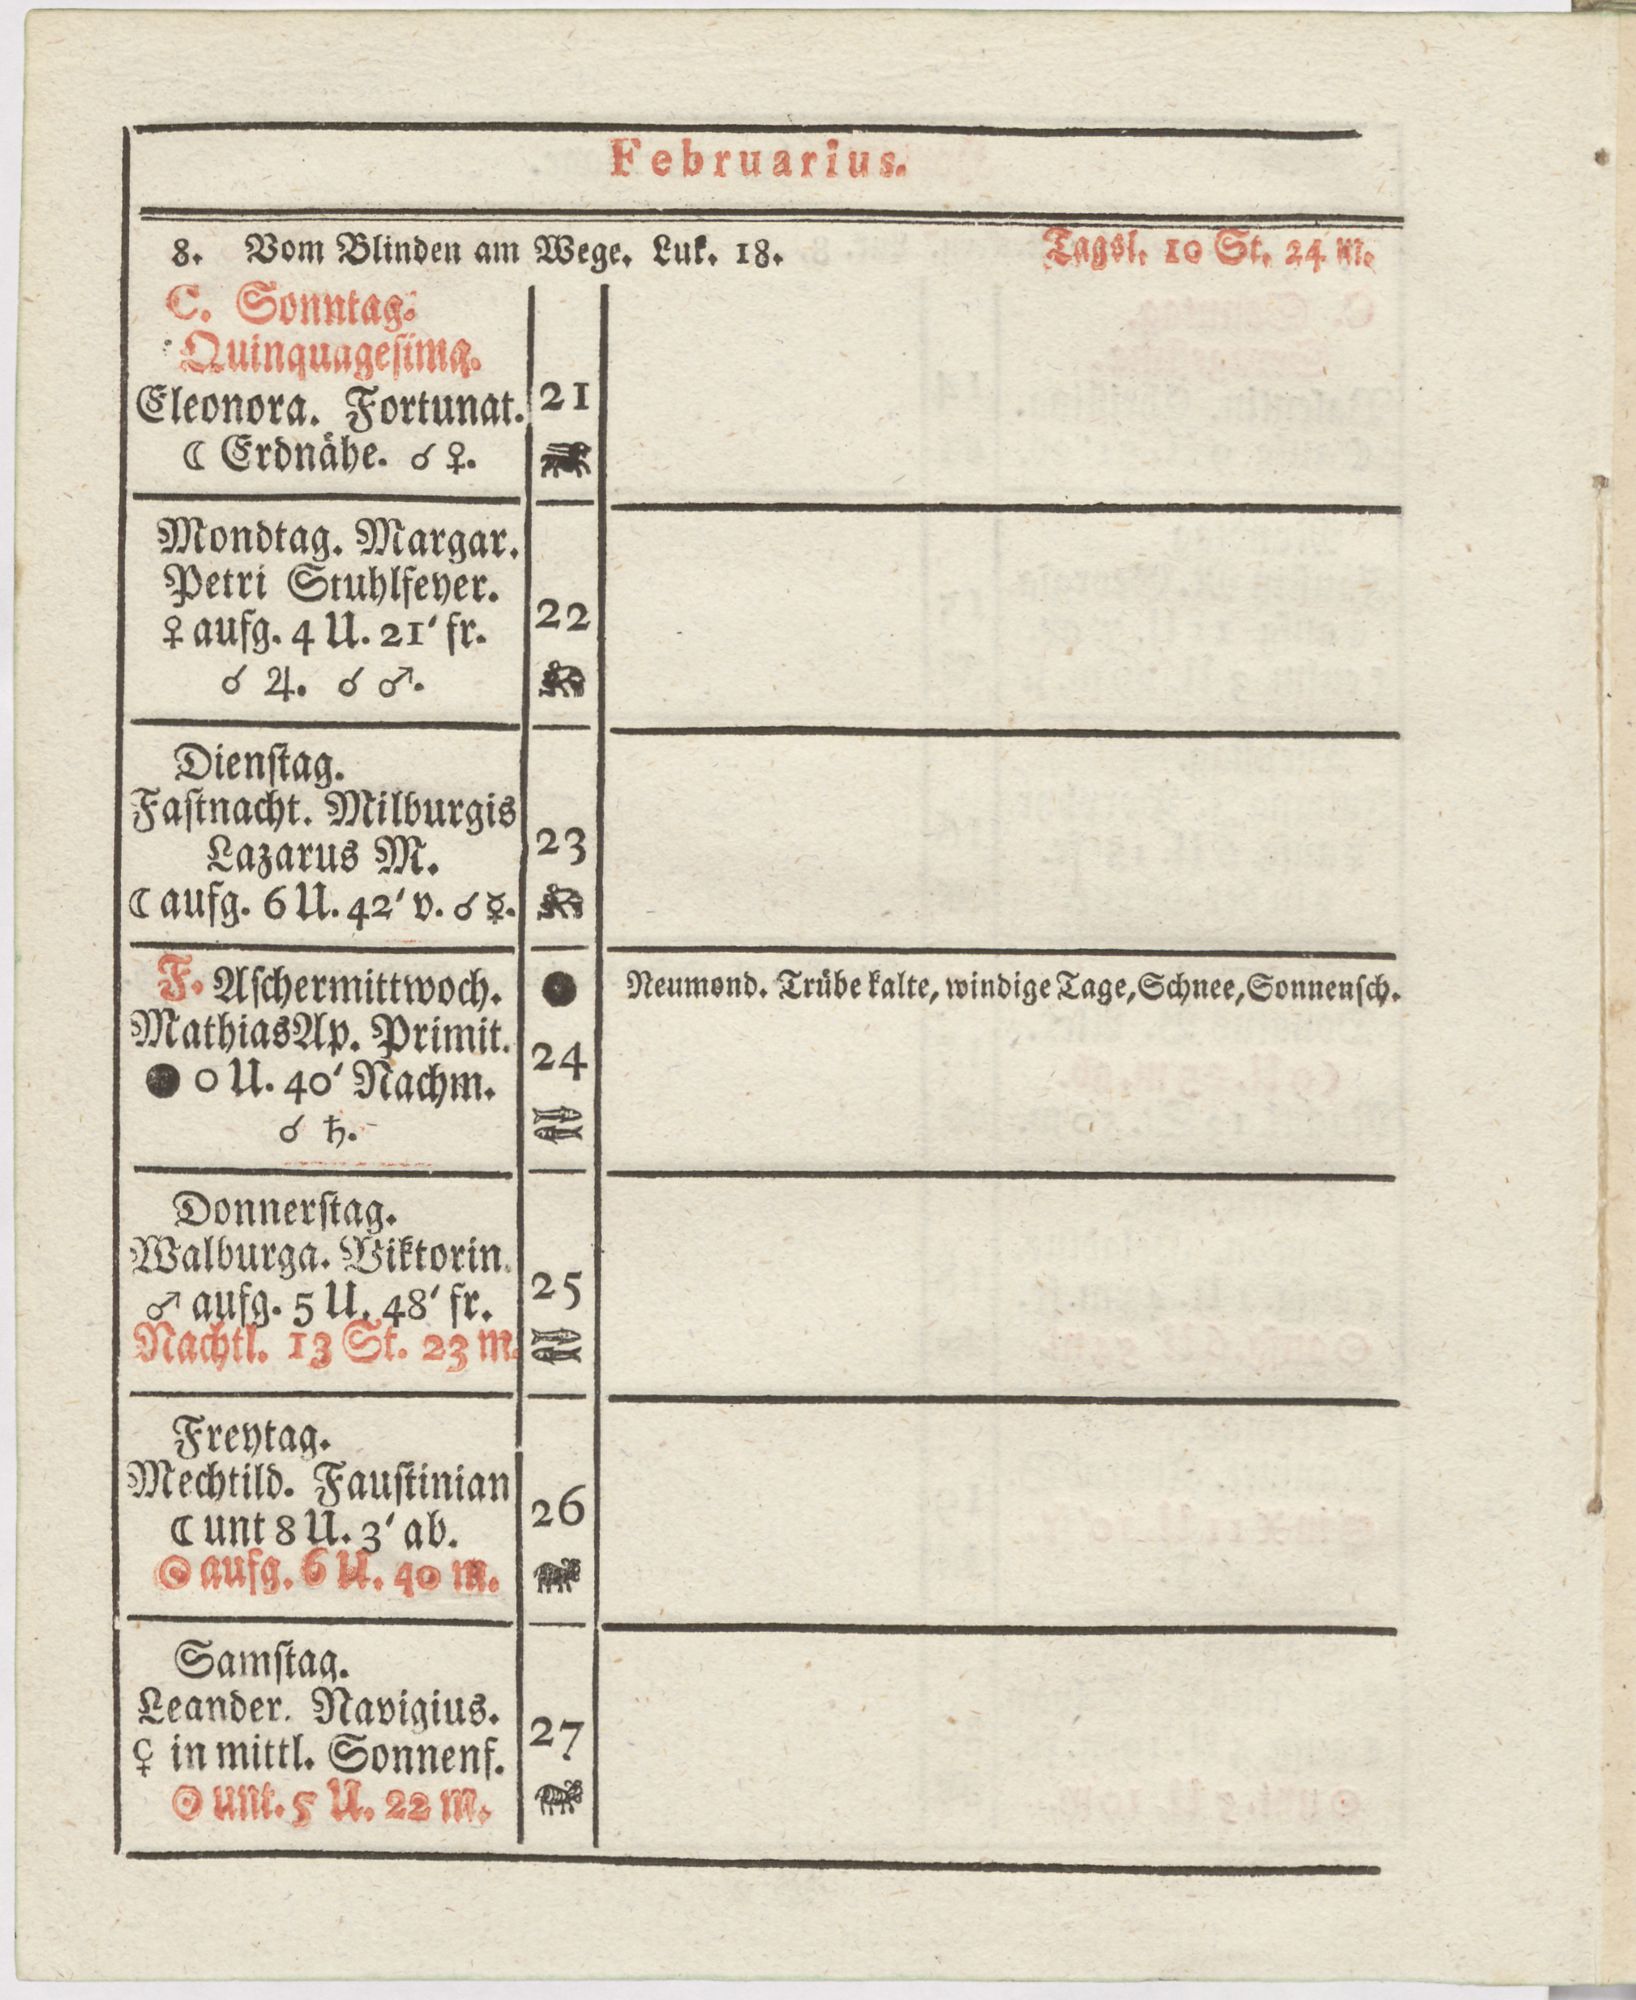 Februarius.
8. Vom Blinden am Wege. Luk. 18. Tagsl. 10 St. 24 m.
C. Sonntag.
Quinquagesima.
Eleonora. Fortunat. 21
☾ Erdnähe. ☌ ♀.
Mondtag. Margar.
Petri Stuhlfeyer. 22
♀ aufg. 4 U. 21' fr.
☌ ♃. ☌ ♂.
Dienstag.
Fastnacht. Milburgis 23
Lazarus M.
☾ aufg. 6 U. 42' v. ☌ ☿.
F. Aschermittwoch. ● Neumond. Trübe kalte, windige Tage, Schnee, Sonnensch.
Mathias Ap. Primit. 24
● 0 U. 40' Nachm.
☌ ♄.
Donnerstag.
Walburga. Viktorin. 25
♂ aufg. 5 U. 48' fr.
Nachtl. 13 St. 23 m.
Freytag.
Mechtild. Faustinian 26
☾ unt 8 U. 3' ab.
☉ aufg. 6 U. 40 m.
Samstag.
Leander. Navigius. 27
♀ in mittl. Sonnenf.
☉ unt. 5 U. 22 m.